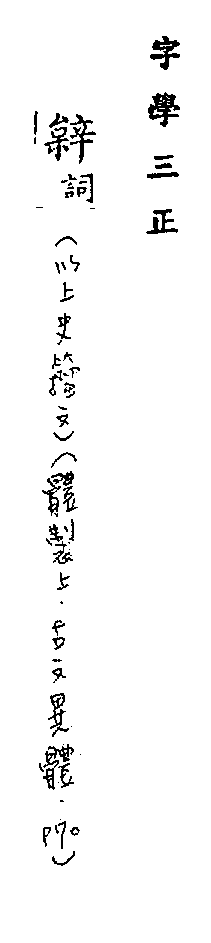 字學三正
詞(以上史籀文)(體製上·古文異體·P70)